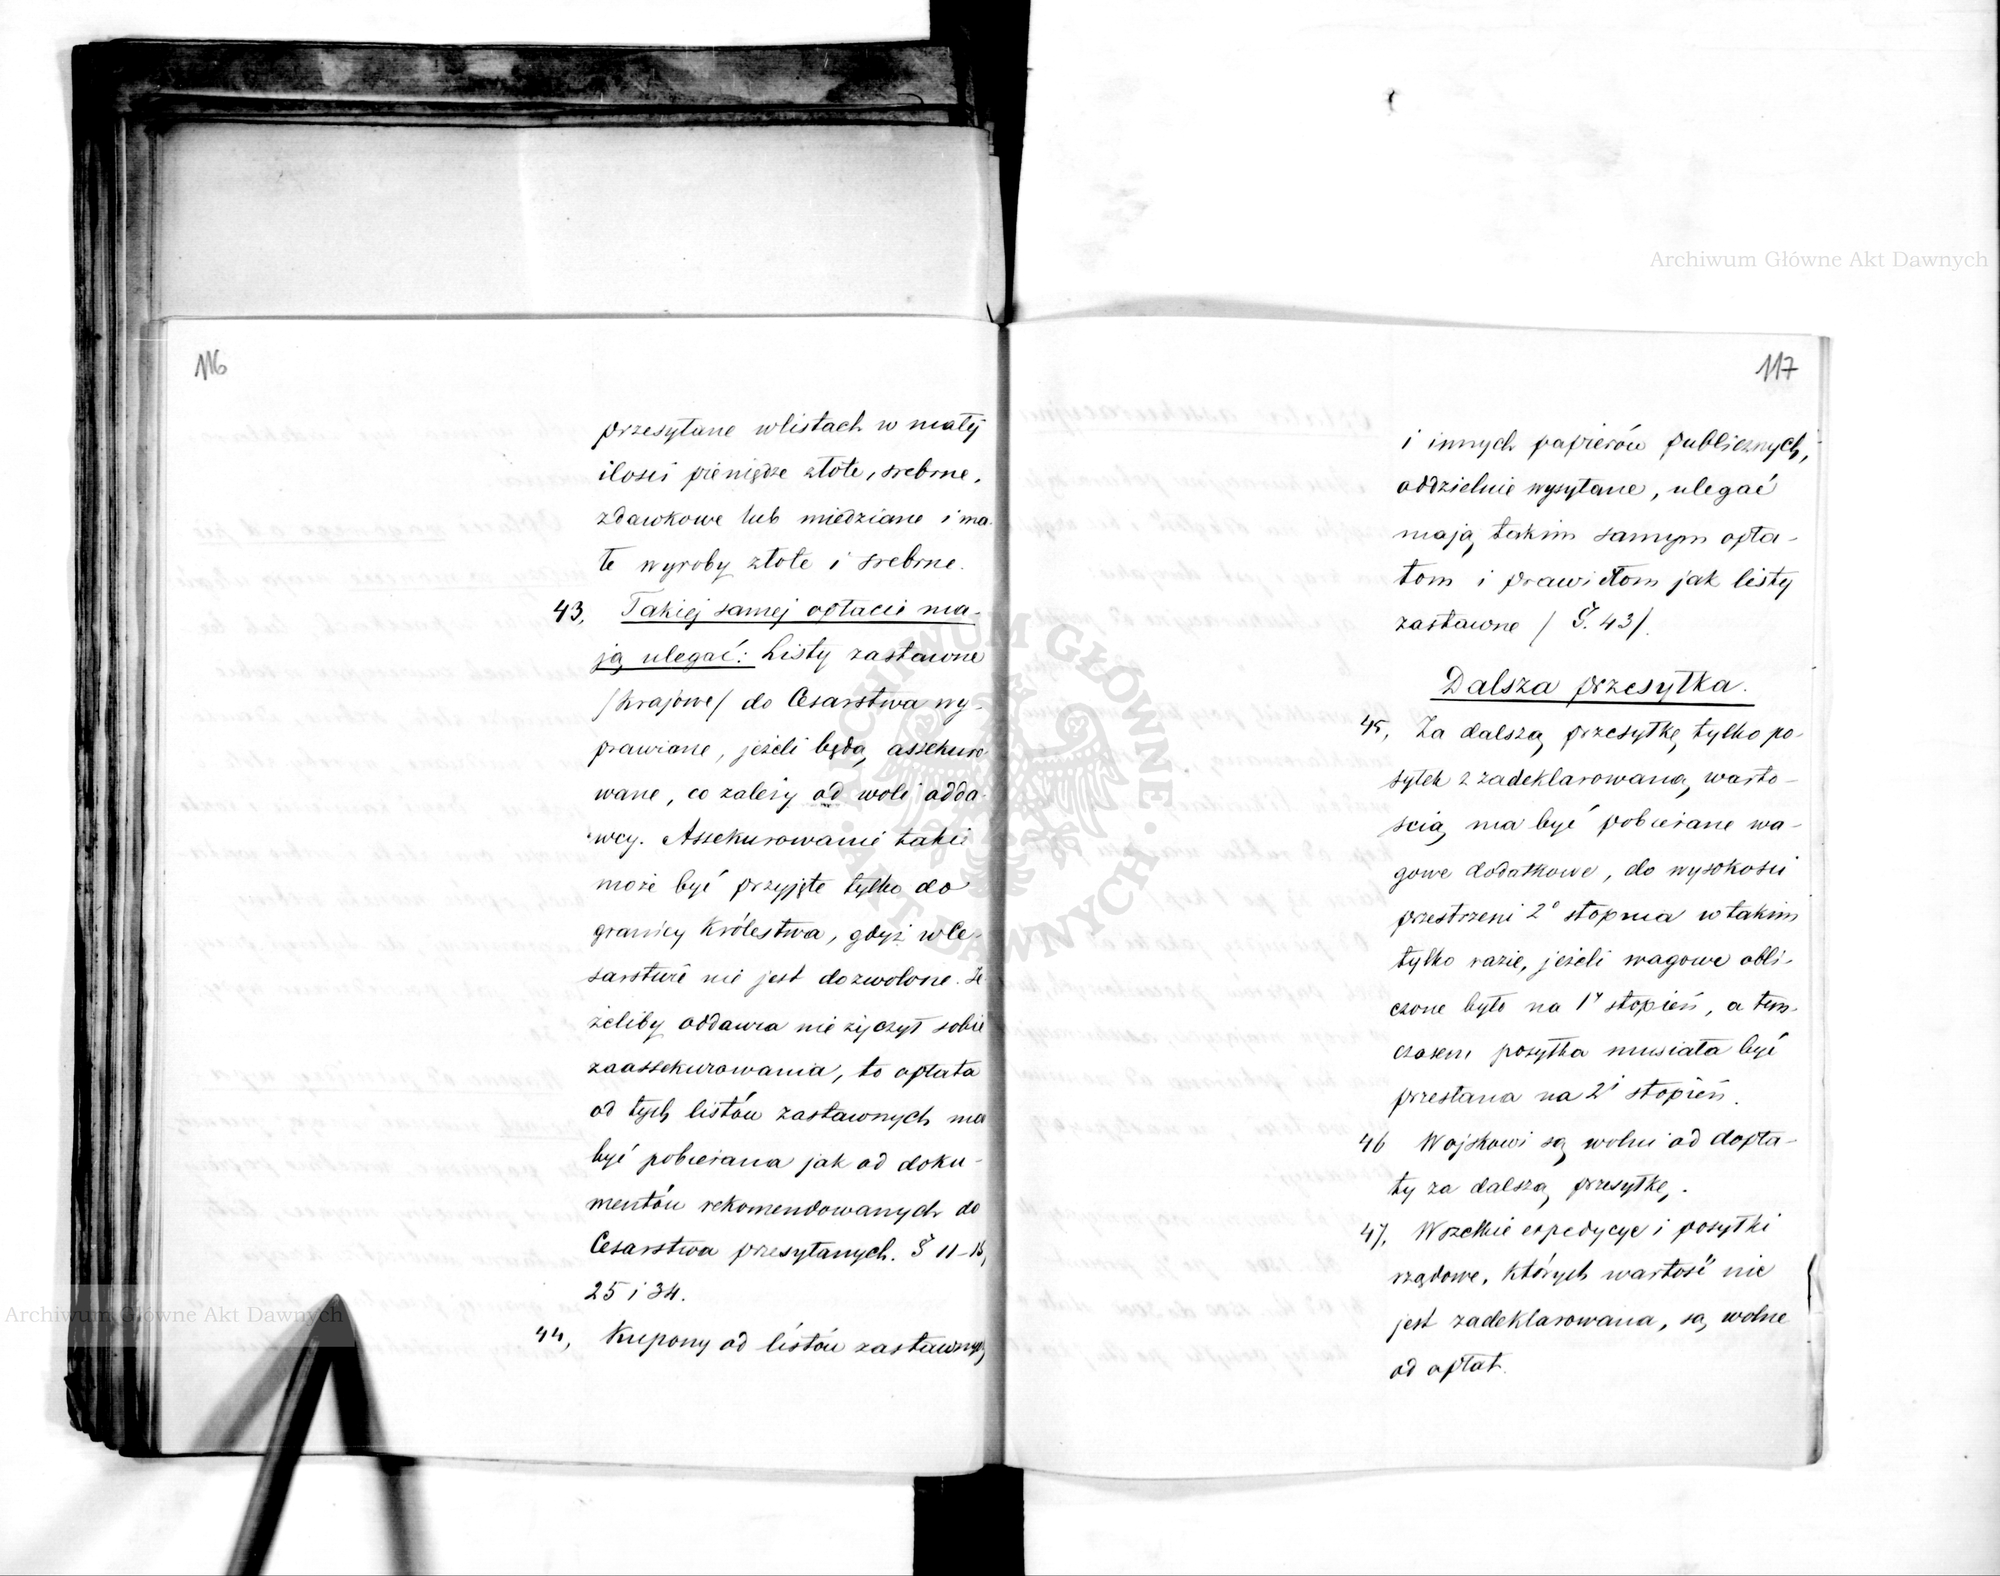 116
przesyłane wlistach w małéj
ilosci pieniądze złote, srebrne,
zdawkowe lub miedziane i ma-
łe wyroby złote i srebrne.
43, Takiej samej opłacie ma-
ją ulegać: Listy zastawne
/krajowe/ do Cesarstwa wy-
prawiane, jeżeli będą assekuro
wane, co zależy od woli odda-
wcy. Assekurowanie takie
może być przyjęte tylko do
granicy Królestwa, gdyż w Ce-
sarstwie nie jest dozwolone. Je-
żeliby oddawca nie życzył sobie
zaassekurowania, to opłata
od tych listów zastawnych ma
być pobierana jak od doku-
mentów rekomendowanych do
Cesarstwa przesyłanych. §
25 i 34.
44, Kupony od listów zastawnych
117
i innych papierów publicznych,
oddzielnie wysyłane, ulegać
mają takim samym opła-
tom i prawidłom jak listy
zastawne / §. 43/.
Dalsza przesyłka.
45, Za dalszą przesyłkę tylko po-
syłek z zadeklarowaną warto-
ścią ma być pobierane wa-
gowe dodatkowe, do wysokości
przestrzeni 2º stopnia w takim
tylko razie, jeżeli wagowe obli-
czone było na 1y stopień, a tym-
czasem posyłka musiała być
przesłana na 2i stopień.
46 Wojskowi są wolni od dopła-
ty za dalszą przesyłkę.
47, Wszelkie expedycye i posyłki
rządowe, których wartość nie
jest zadeklarowana, są wolne
od opłat.
Archiwum Główne Akt Dawnych
Archiwum Główne Akt Dawnych
ARCHIWUM GŁÓWNE
AKT DAWNYCH